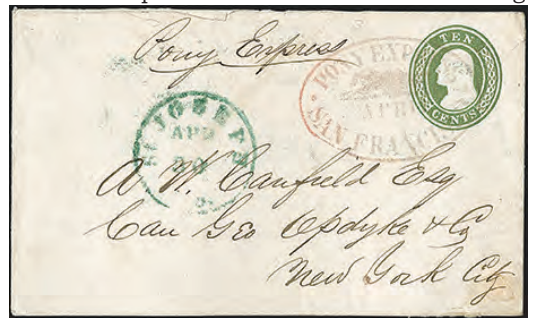 Pony Express
PONY EXP
APR
SAN FRANC
TEN
CENTS
ST JOSEPH
APR
A. W. Canfield Esq
Care Geo Opdyke & Co
New York City